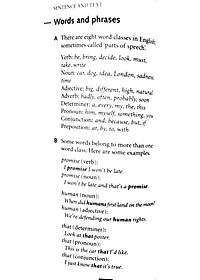 SENTENCE AND TEXT
Words and phrases
A There are eight word classes in English,
sometimes called 'parts of speech'.
Verb: be, bring, decide, look, must,
take, write
Noun: car, dog, idea, London, sadness,
time
Adjective: big, different, high, natural
Adverb: badly, often, probably, soon
Determiner: a, every, my, the, this
Pronoun: him, myself, something, you
Conjunction: and, because, but, if
Preposition: at, by, to, with
B Some words belong to more than one
word class. Here are some examples.
promise (verb):
I promise I won't be late.
promise (noun):
I won't be late and that's a promise.
human (noun):
When did humans first land on the moon?
human (adjective):
We're defending our human rights.
that (determiner):
Look at that poster.
that (pronoun):
This is the car that I'd like.
that (conjunction):
I just know that it's true.